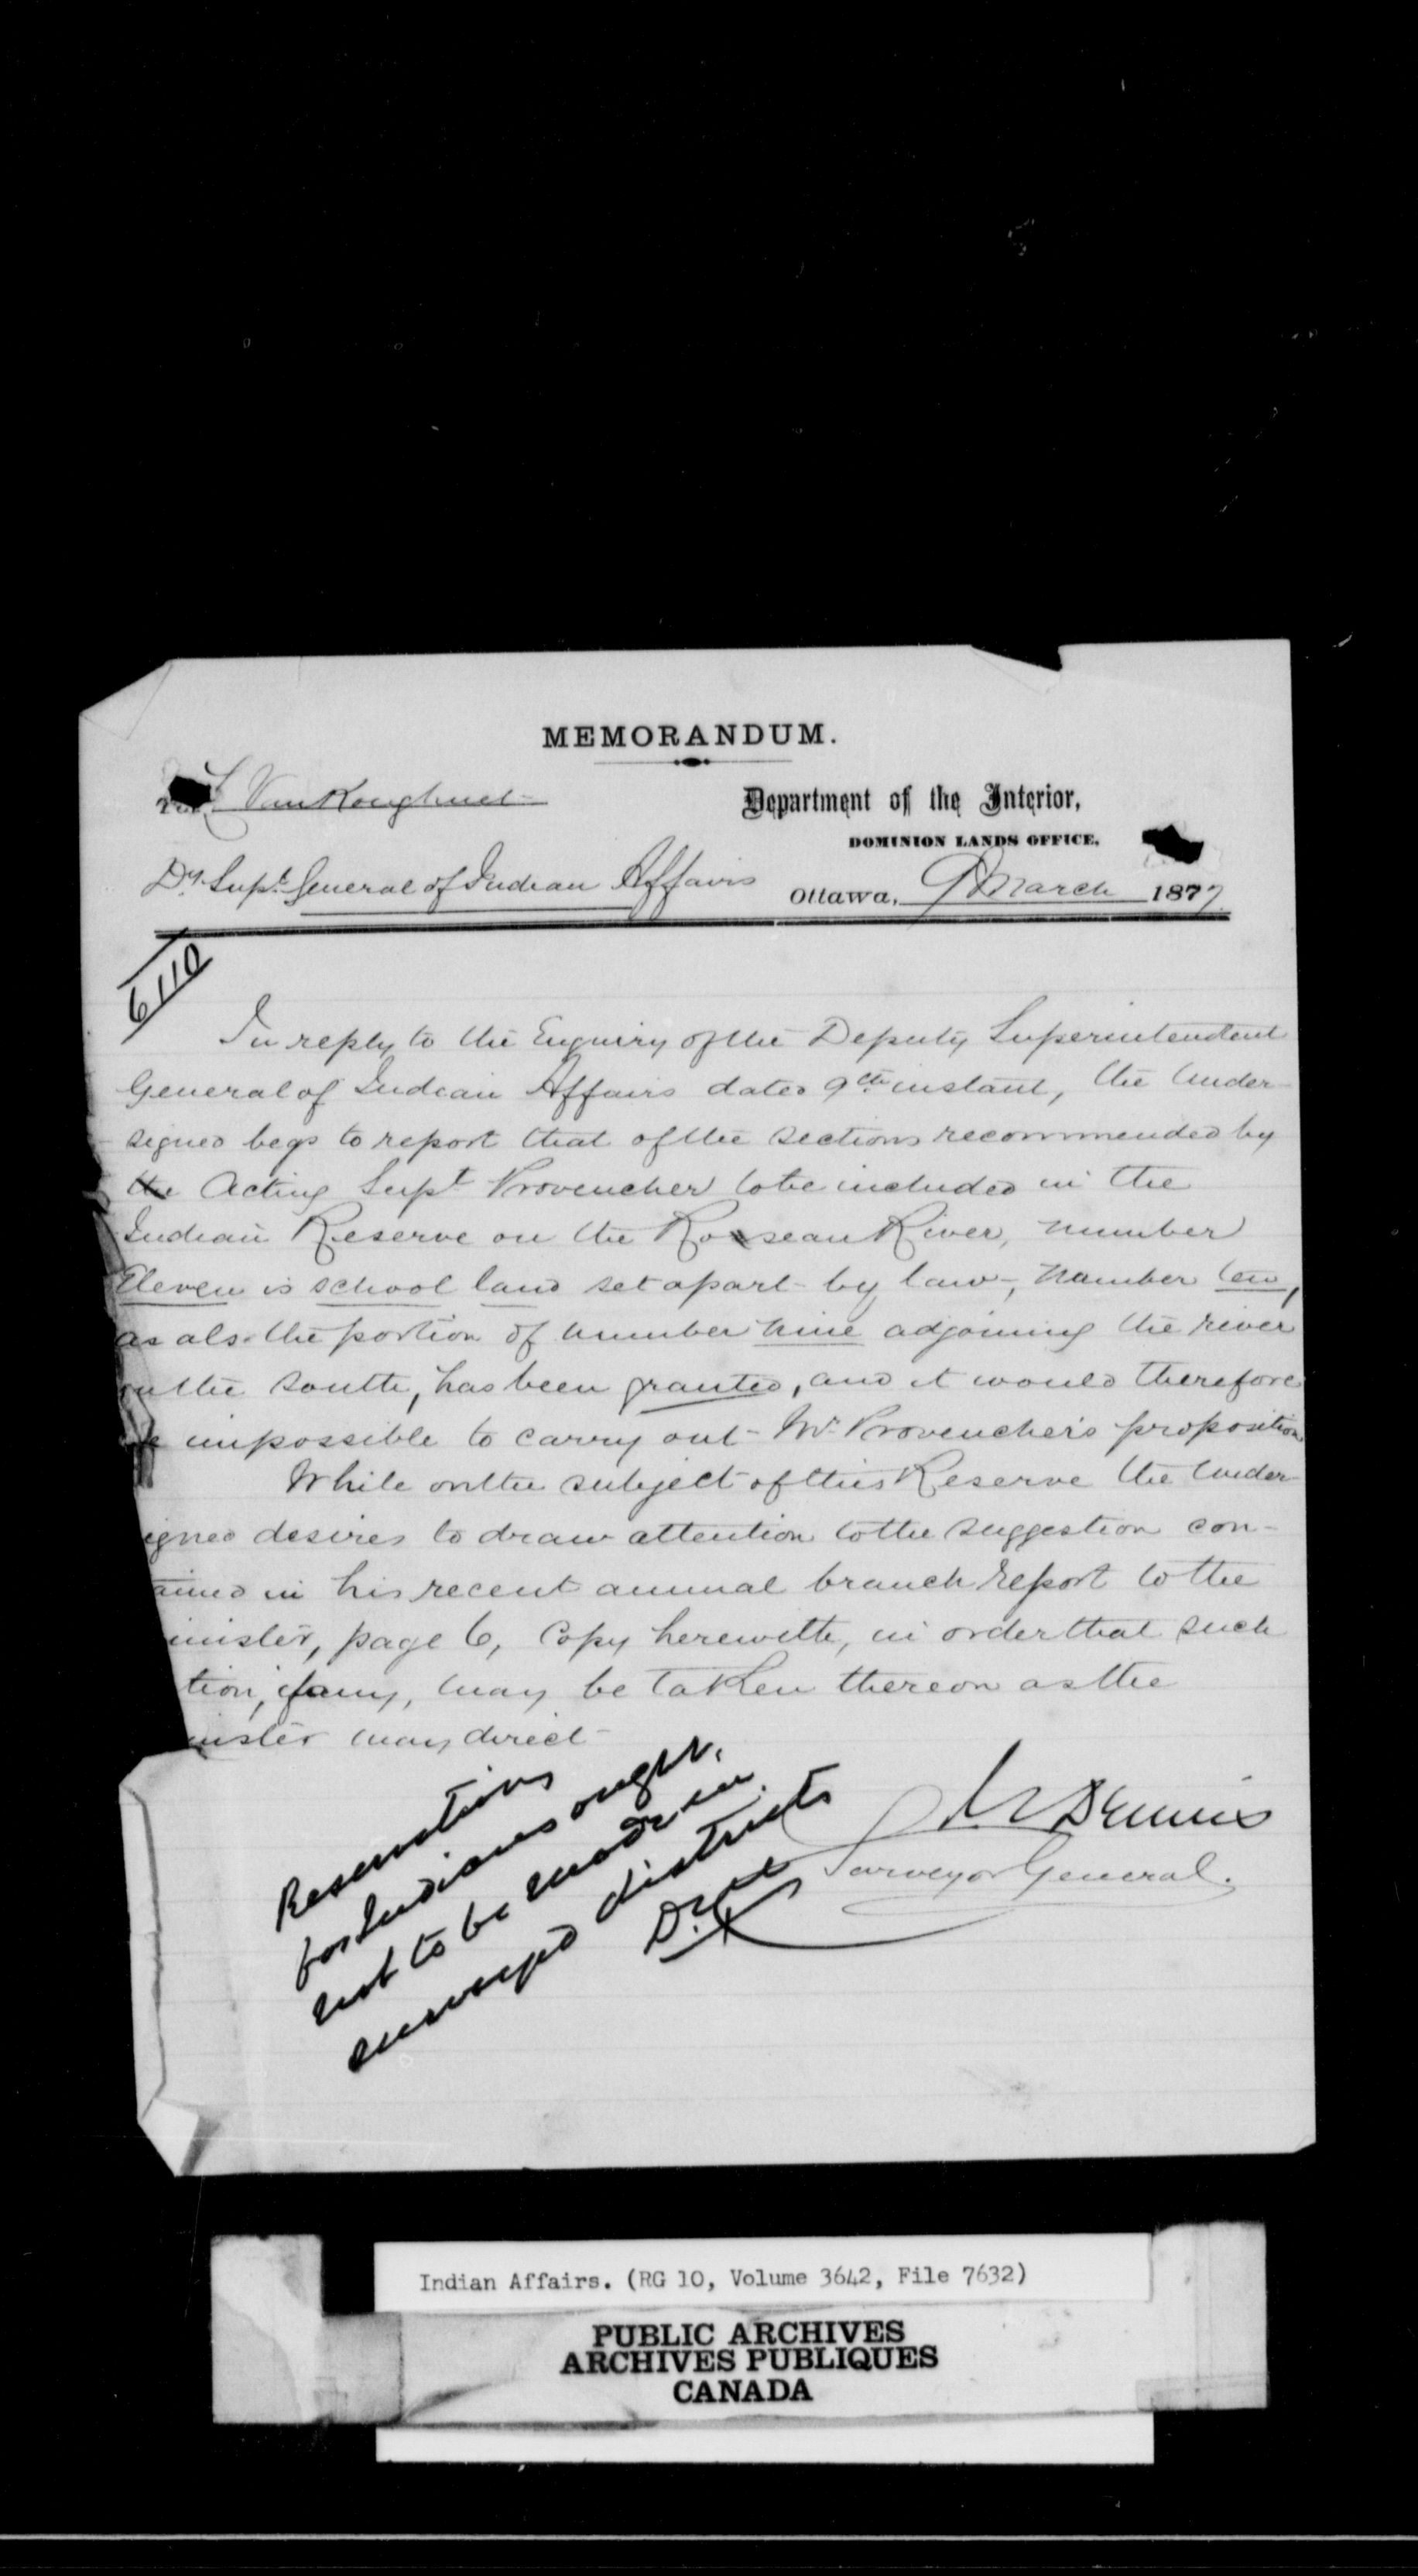 MEMORANDUM.
L VanKoughnet
Department of the Interior,
DOMINION LANDS OFFICE,
Dy. Supt. General of Indian Affairs
Ottawa, 9 March 1877
6110
In reply to the Enquiry of the Deputy Superintendent
General of Indian Affairs dated 9th instant, the Under-
signed begs to report that of the sections recommended by
the Acting Supt Provencher to be included in the
Indian Reserve on the Rosseau River, number
Eleven is school land set apart by law, number ten,
as also the portion of number nine adjoining the river
on the south, has been granted, and it would therefore
be impossible to carry out Mr. Provencher's proposition
While on the subject of this Reserve the Under-
igned desires to draw attention to the suggestion con-
ained in his recent annual branch report to the
inister, page 6, Copy herewith, in order that such
tion, if any, may be taken thereon as the
inister may direct
Reservations
for Indians ought
not to be made in
surveyed districts
J S Dennis
Surveyor General.
Indian Affairs. (RG 10, Volume 3642, File 7632)
PUBLIC ARCHIVES
ARCHIVES PUBLIQUES
CANADA